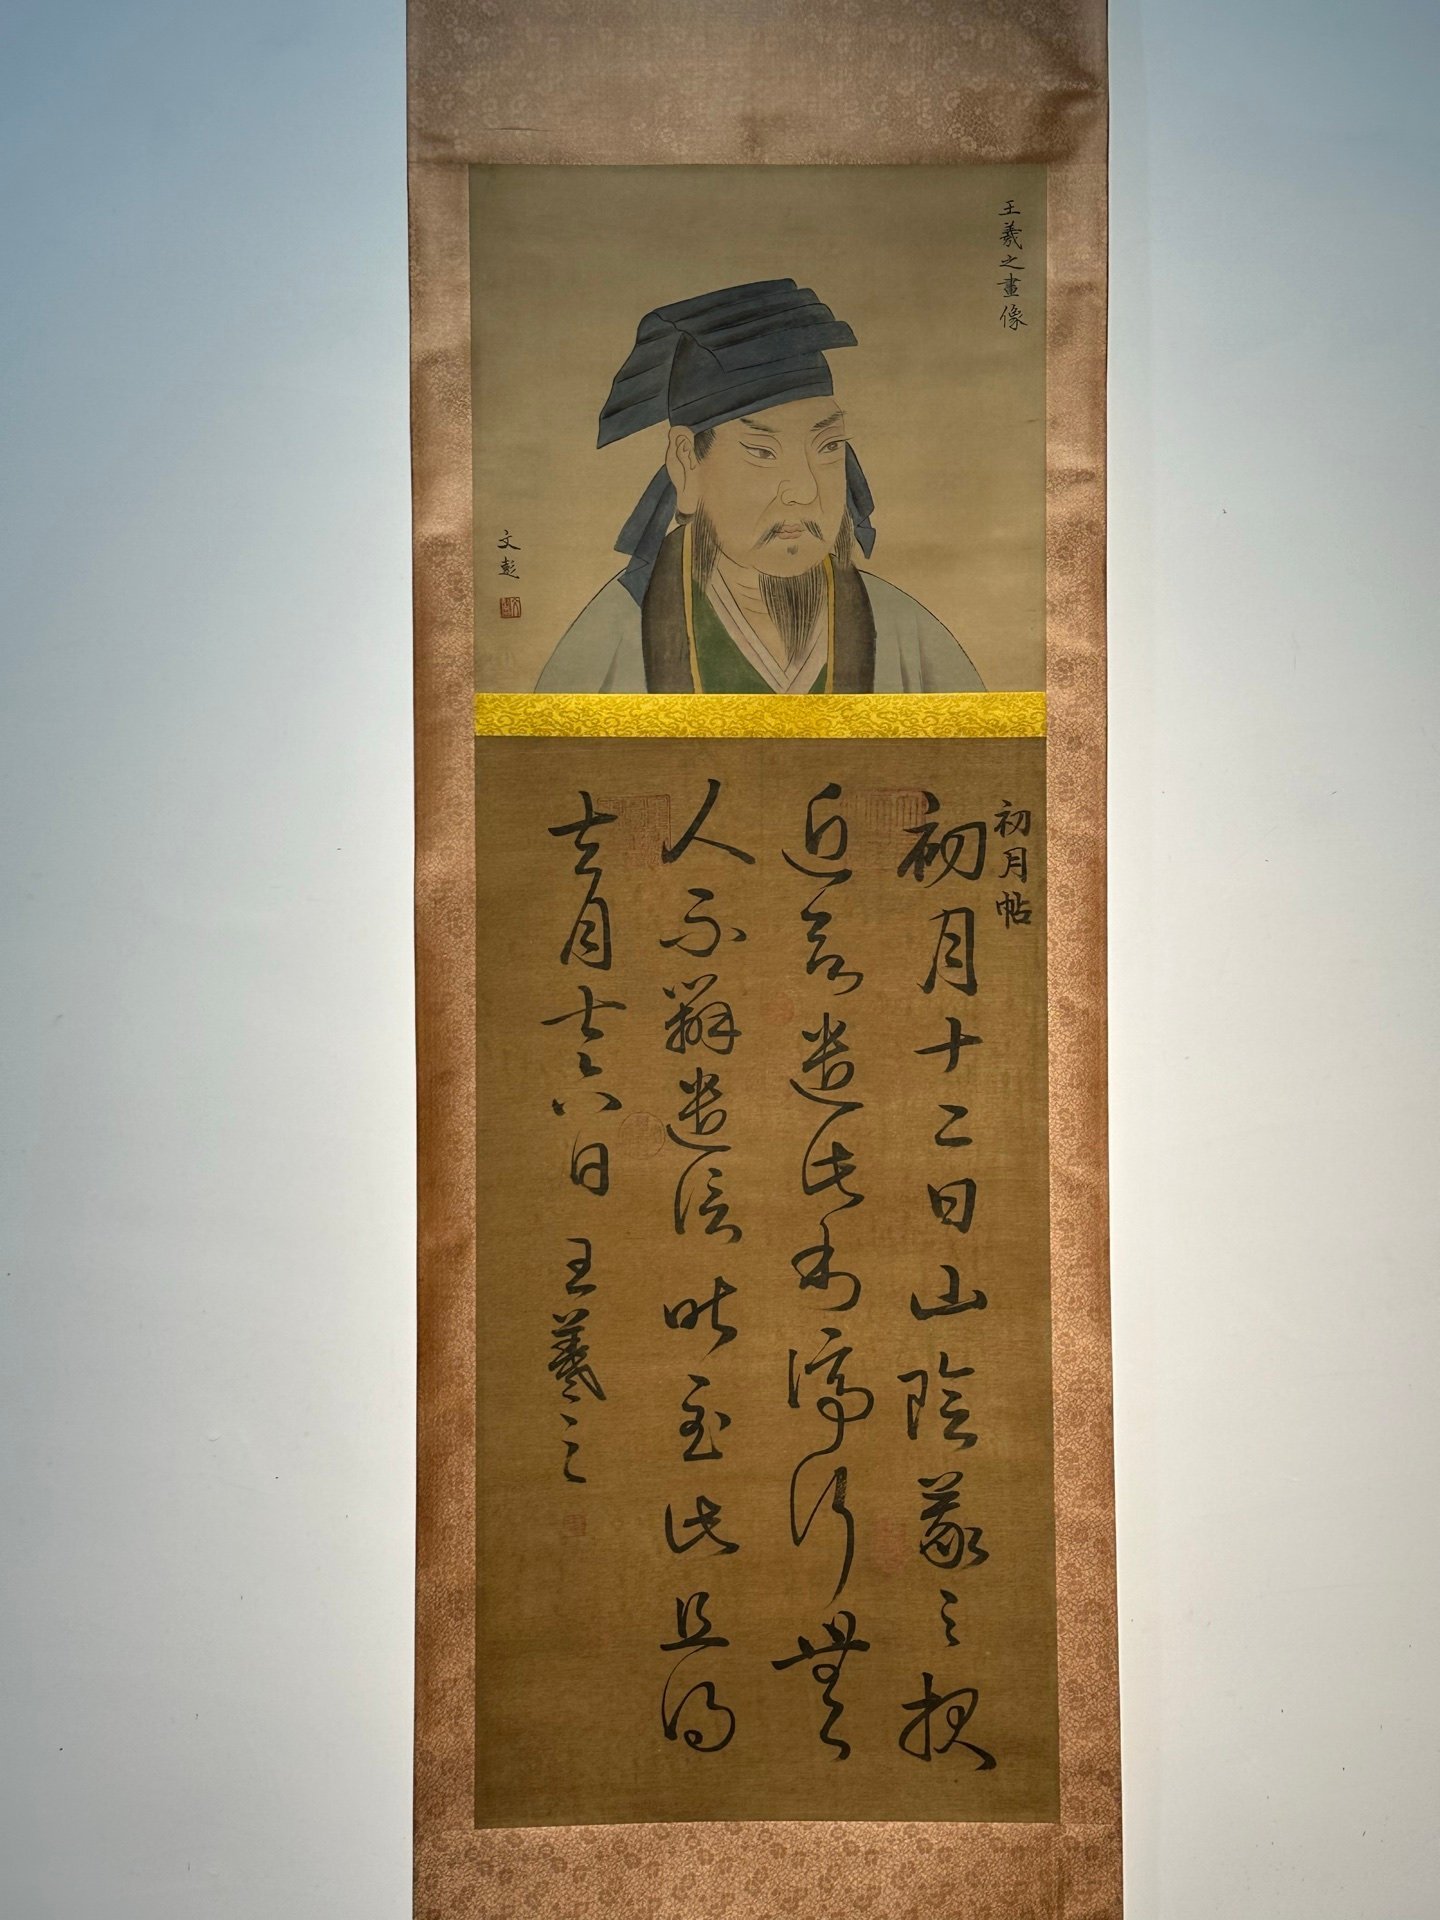 王羲之畫像
文彭
初月帖
初月十二日山陰羲之報
近欲遣此書停行無
人不辦遣信昨至此且得
去月十六日 王羲之